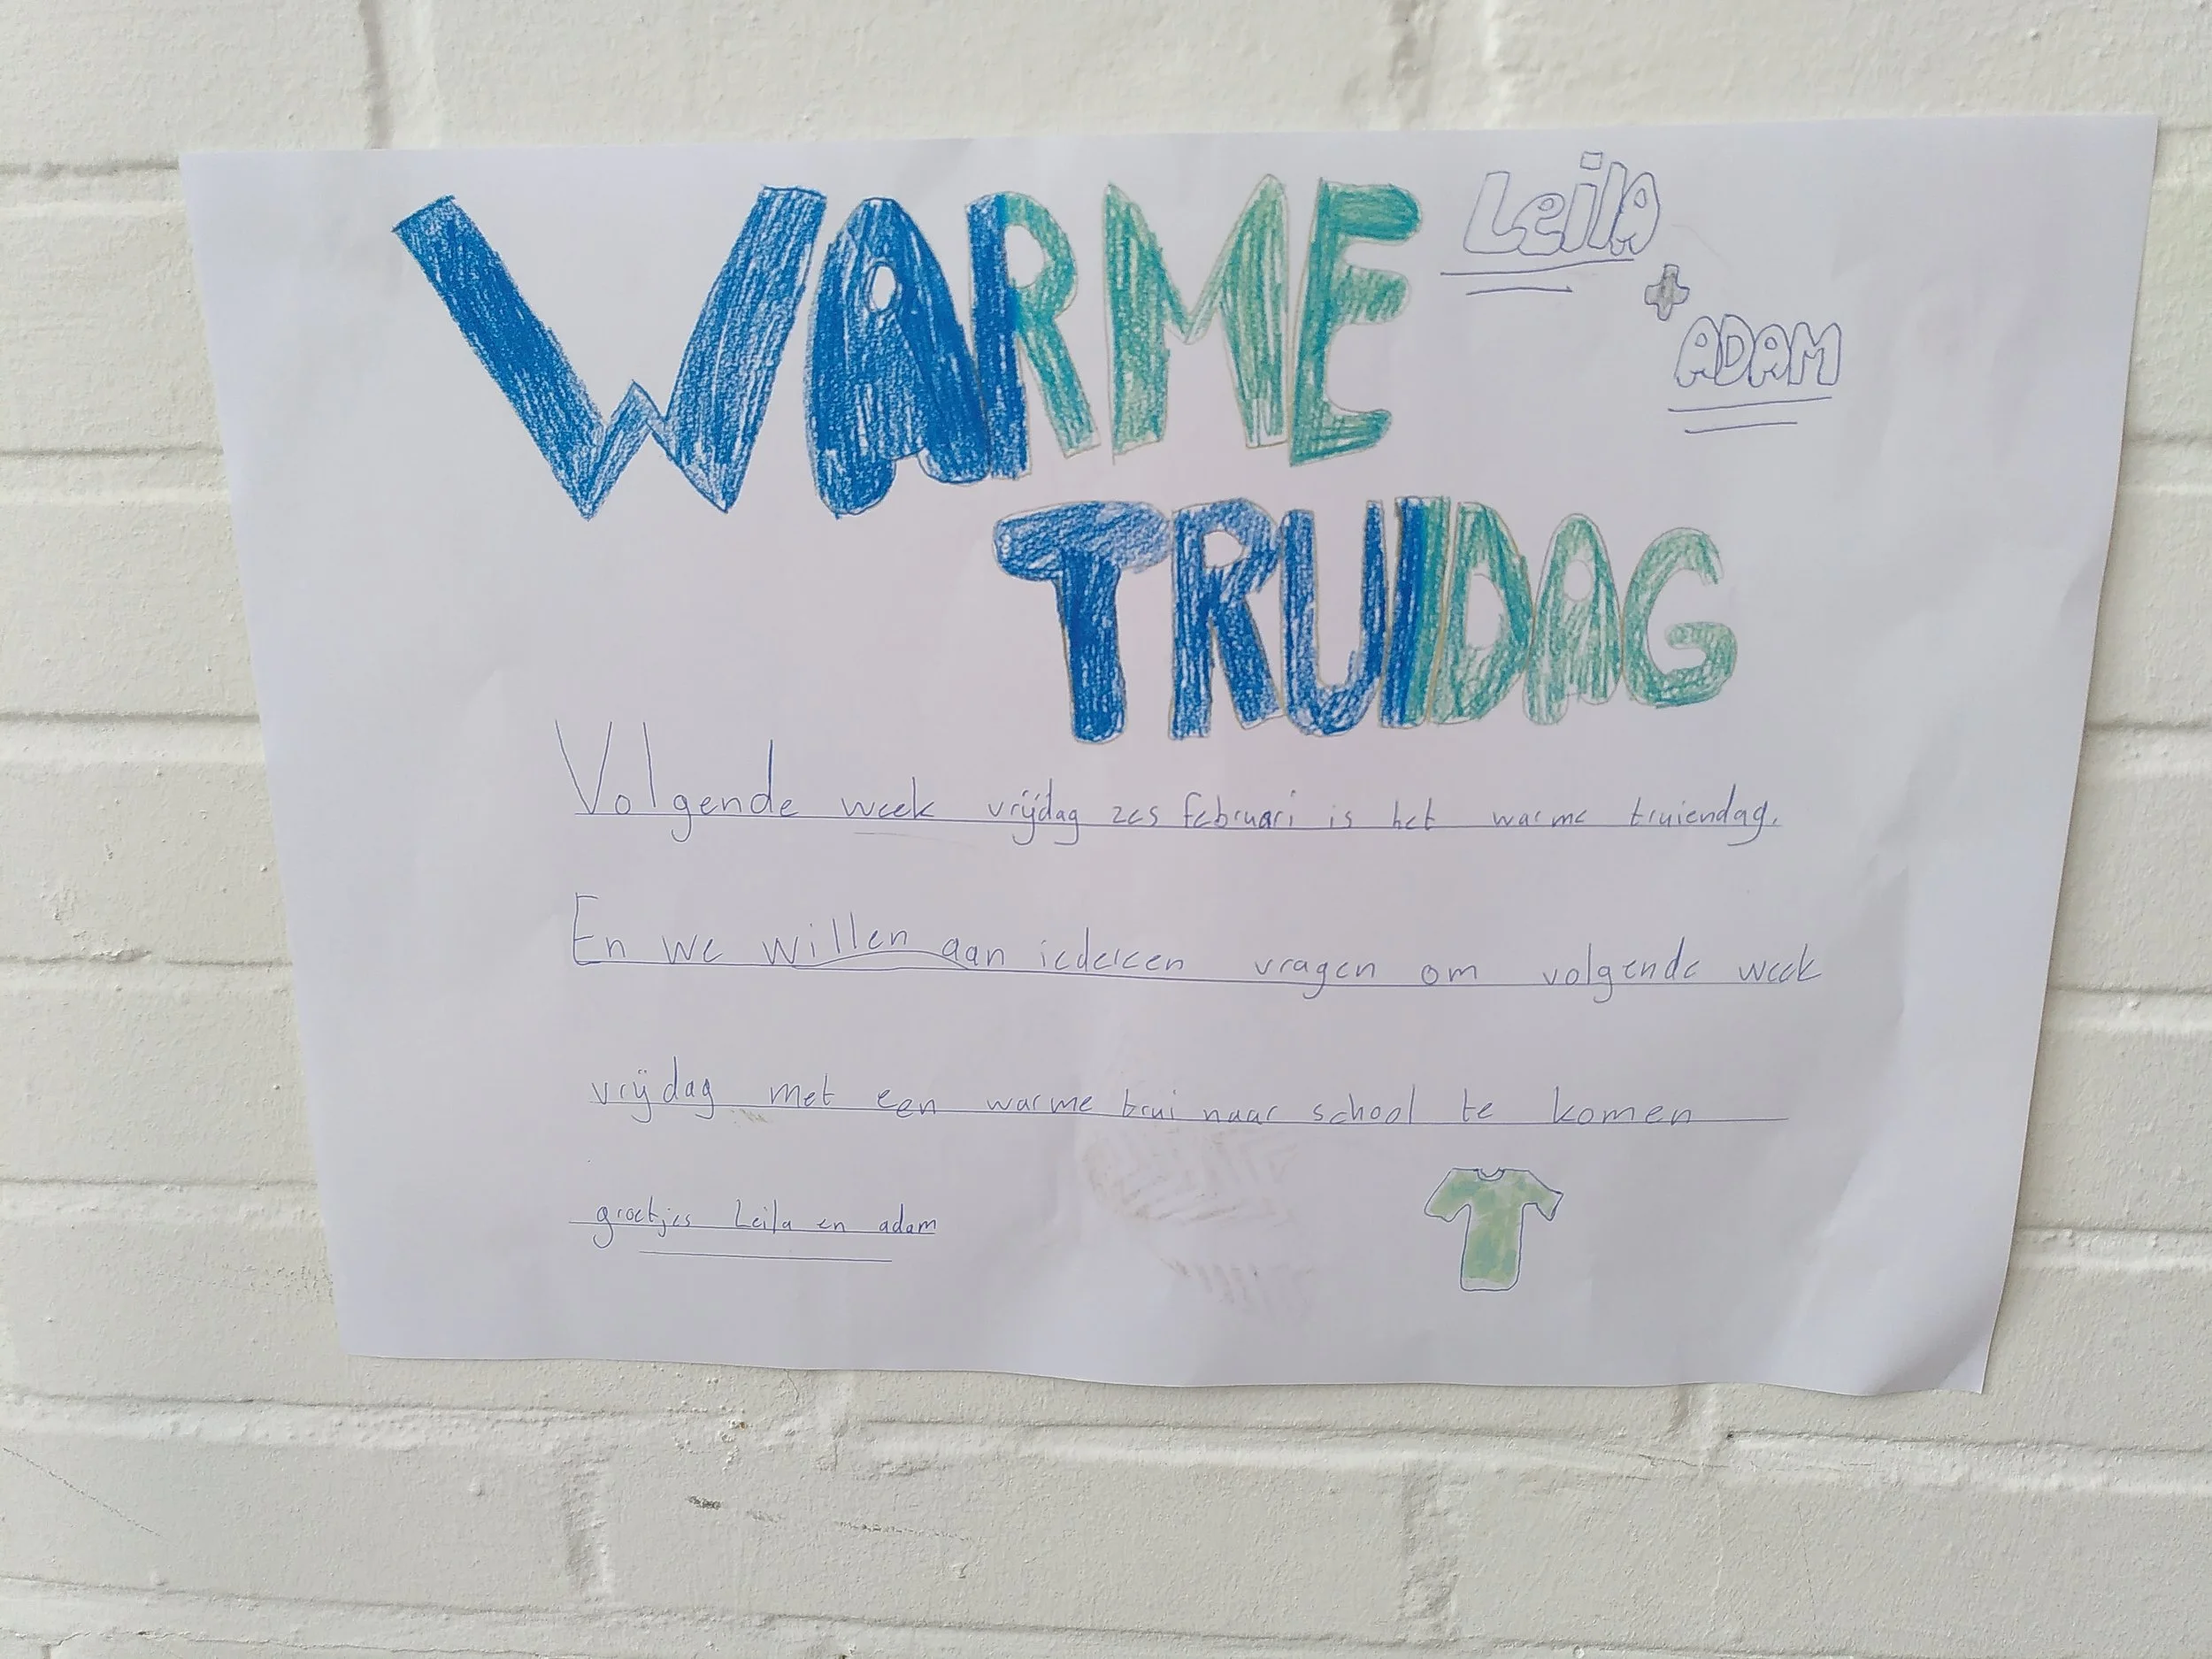 WARME
Leila
+
ADAM
TRUIDAG
Volgende week vrijdag zes februari is het warme truiendag.
En we willen aan iedereen vragen om volgende week
vrijdag met een warme trui naar school te komen
groetjes Leila en adam